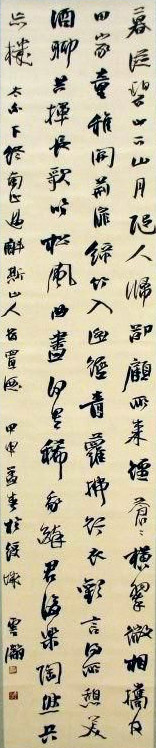 暮從碧山下山月隨人歸卻顧所來徑蒼々橫翠微相攜及
田家童稚開荊扉綠竹入幽徑青蘿拂行衣歡言得所憩美
酒聊共揮長歌吟松風曲盡河星稀我醉君復樂陶然共
忘機 太白下終南山過斛斯山人宿置酒 甲申孟春於